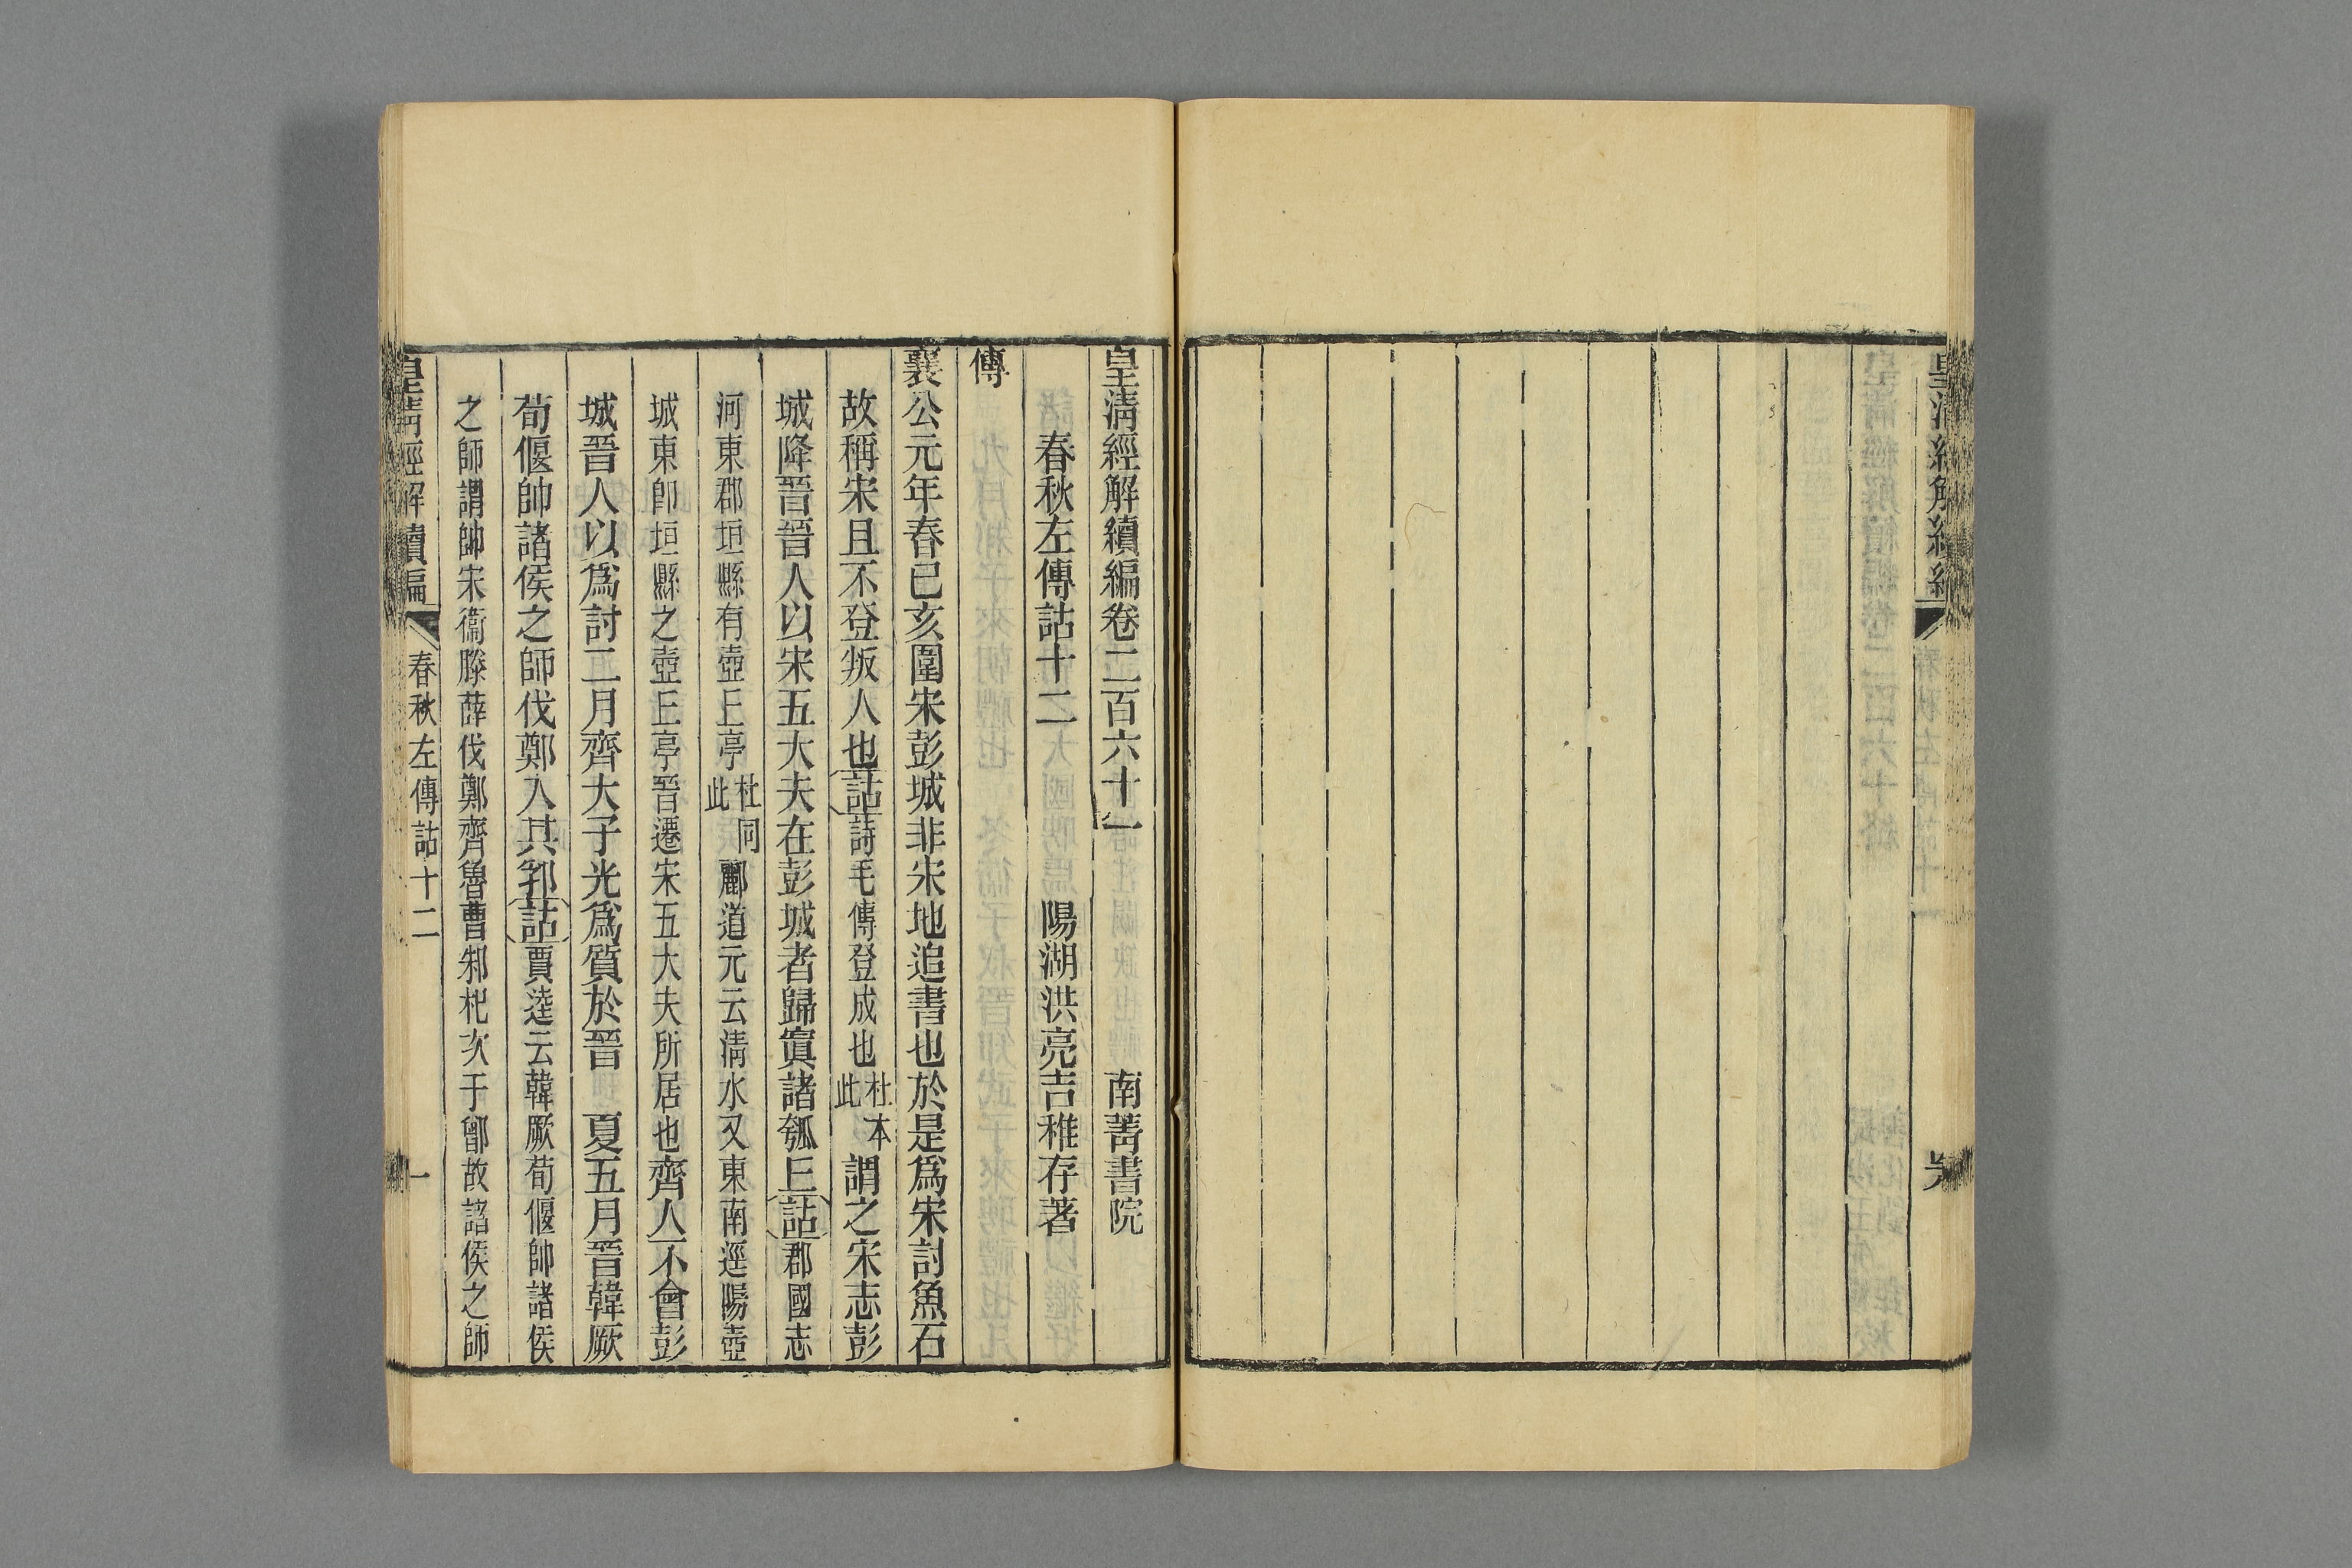 皇清經解續編卷二百六十一　南菁書院
春秋左傳詁十二　陽湖洪亮吉稚存著
傳
襄公元年春己亥圍宋彭城非宋地追書也於是爲宋討魚石
故稱宋且不登叛人也詁詩毛傳登成也杜本此謂之宋志彭
城降晉晉人以宋五大夫在彭城者歸寘諸瓠丘詁郡國志
河東郡垣縣有壺丘亭杜同此酈道元云淸水又東南逕陽壺
城東卽垣縣之壺丘亭晉遷宋五大夫所居也齊人不會彭
城晉人以爲討二月齊大子光爲質於晉　夏五月晉韓厥
荀偃帥諸侯之師伐鄭入其郛詁賈逵云韓厥荀偃帥諸侯
之師謂帥宋衞滕薛伐鄭齊魯曹邾杞次于鄫故詔侯之師
皇清經解續編　春秋左傳詁十二　一